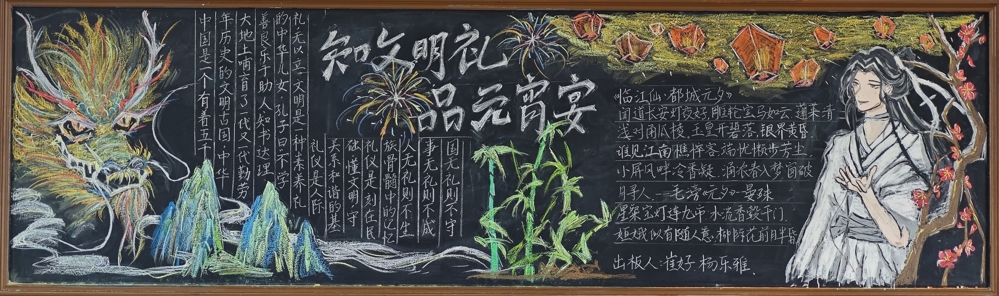 知文明礼
品元宵宴
中国是一个有着五千
年历史的文明古国,中华
大地上哺育了一代又一代勤劳
善良乐于助人知书达理
的中华儿女,孔子曰不学
礼无以立,文明是一种
礼仪是人际
关系和谐的基
础,懂文明,守
礼仪是刻在民
族骨髓中的记忆
人无礼则不生
事无礼则不成
国无礼则不守
《临江仙·都城元夕》
闻道长安灯夜好,雕轮宝马如云,蓬莱清
浅对觚棱,玉皇开碧落,银界黄昏
谁见江南憔悴客,端忧懒步芳尘,
小屏风畔冷香凝,酒浓春入梦,窗破
月寻人,——毛滂《元夕》—晏殊
宝灯连九市 水沉香 千门
随人意,柳陌花前月半昏
出板人:崔好 杨乐雅.